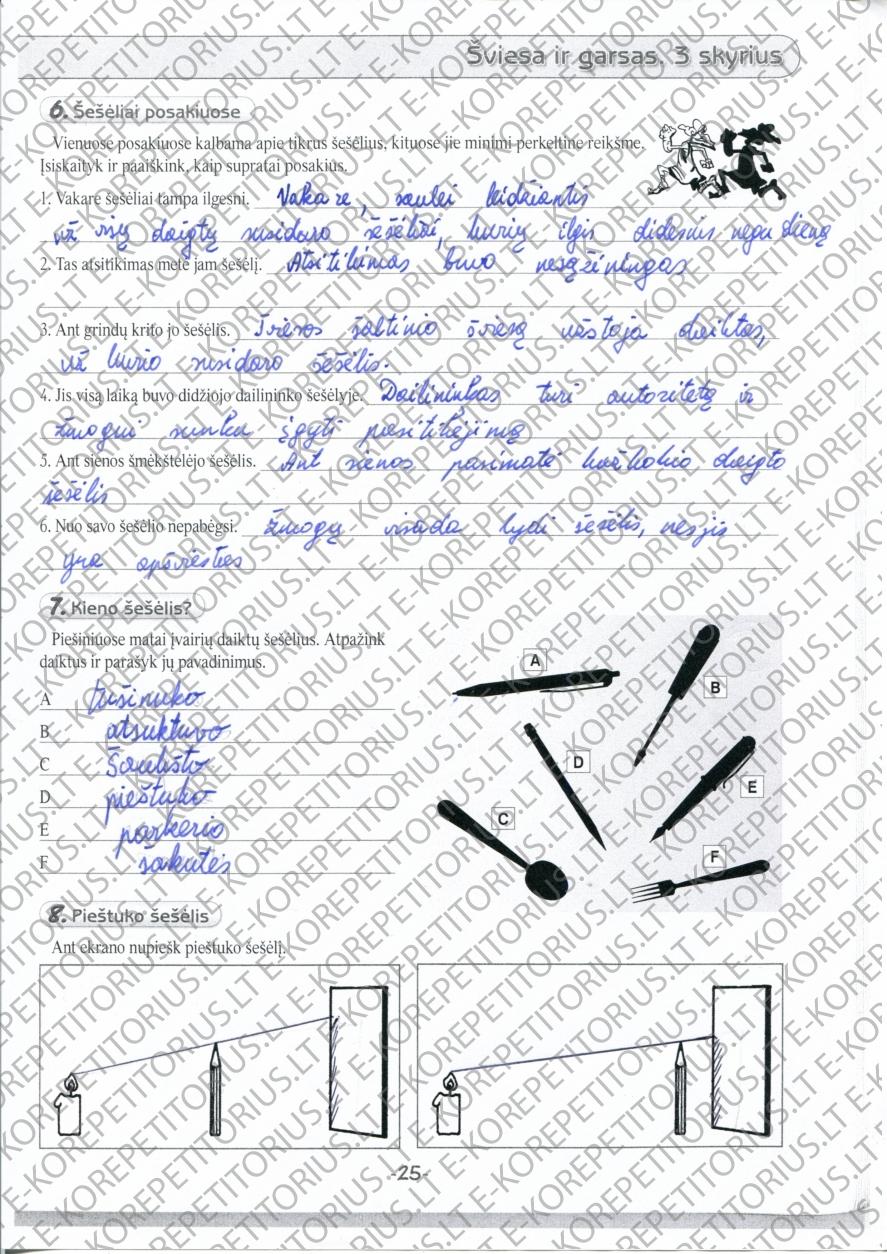 Šviesa ir garsas. 3 skyrius
6. Šešėliai posakiuose
Vienuose posakiuose kalbama apie tikrus šešėlius, kituose jie minimi perkeltine reikšme.
Įsiskaityk ir paaiškink, kaip supratai posakius.
1. Vakare šešėliai tampa ilgesni. Vakare, saulei leidžiantis
už visų daigtų susidaro šešėliai, kurių ilgis didesnis negu dieną
2. Tas atsitikimas metė jam šešėlį. Atsitikimas buvo nesąžiningas
3. Ant grindų krito jo šešėlis. Šviesos šaltinio šviesą užstoja daiktas,
už kurio susidaro šešėlis.
4. Jis visą laiką buvo didžiojo dailininko šešėlyje. Dailininkas turi autoritetą ir
žmogui sunku įgyti pasitikėjimą
5. Ant sienos šmėkštelėjo šešėlis. Ant sienos pasimatė kažkokio daigto
šešėlis
6. Nuo savo šešėlio nepabėgsi. Žmogų visada lydi šešėlis, nes jis
yra apšviestas
7. Kieno šešėlis?
Piešiniuose matai įvairių daiktų šešėlius. Atpažink
daiktus ir parašyk jų pavadinimus.
A tušinuko
B atsuktuvo
C Šaukšto
D pieštuko
E parkerio
F šakutės
A
B
D
E
C
F
8. Pieštuko šešėlis
Ant ekrano nupiešk pieštuko šešėlį.
-25-
E-KOREPETITORIUS.LT